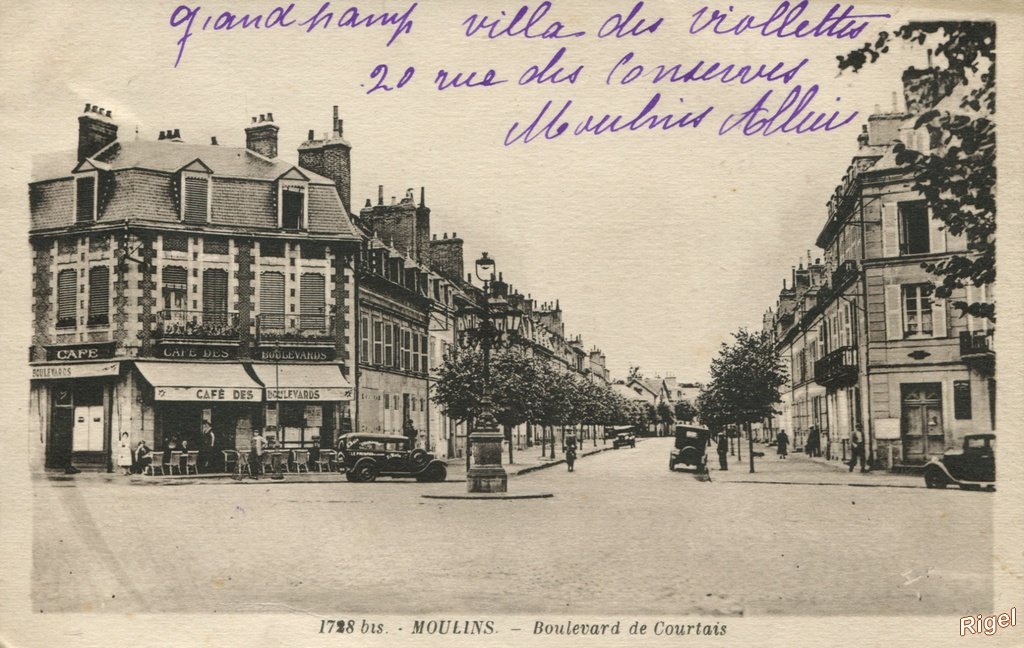 grandchamp villa des viollettes
20 rue des Conserves
Moulins Allier
CAFE
CAFE DES
BOULEVARDS
BOULEVARDS
CAFÉ DES
BOULEVARDS
1728 bis. - MOULINS. - Boulevard de Courtais
Rigel